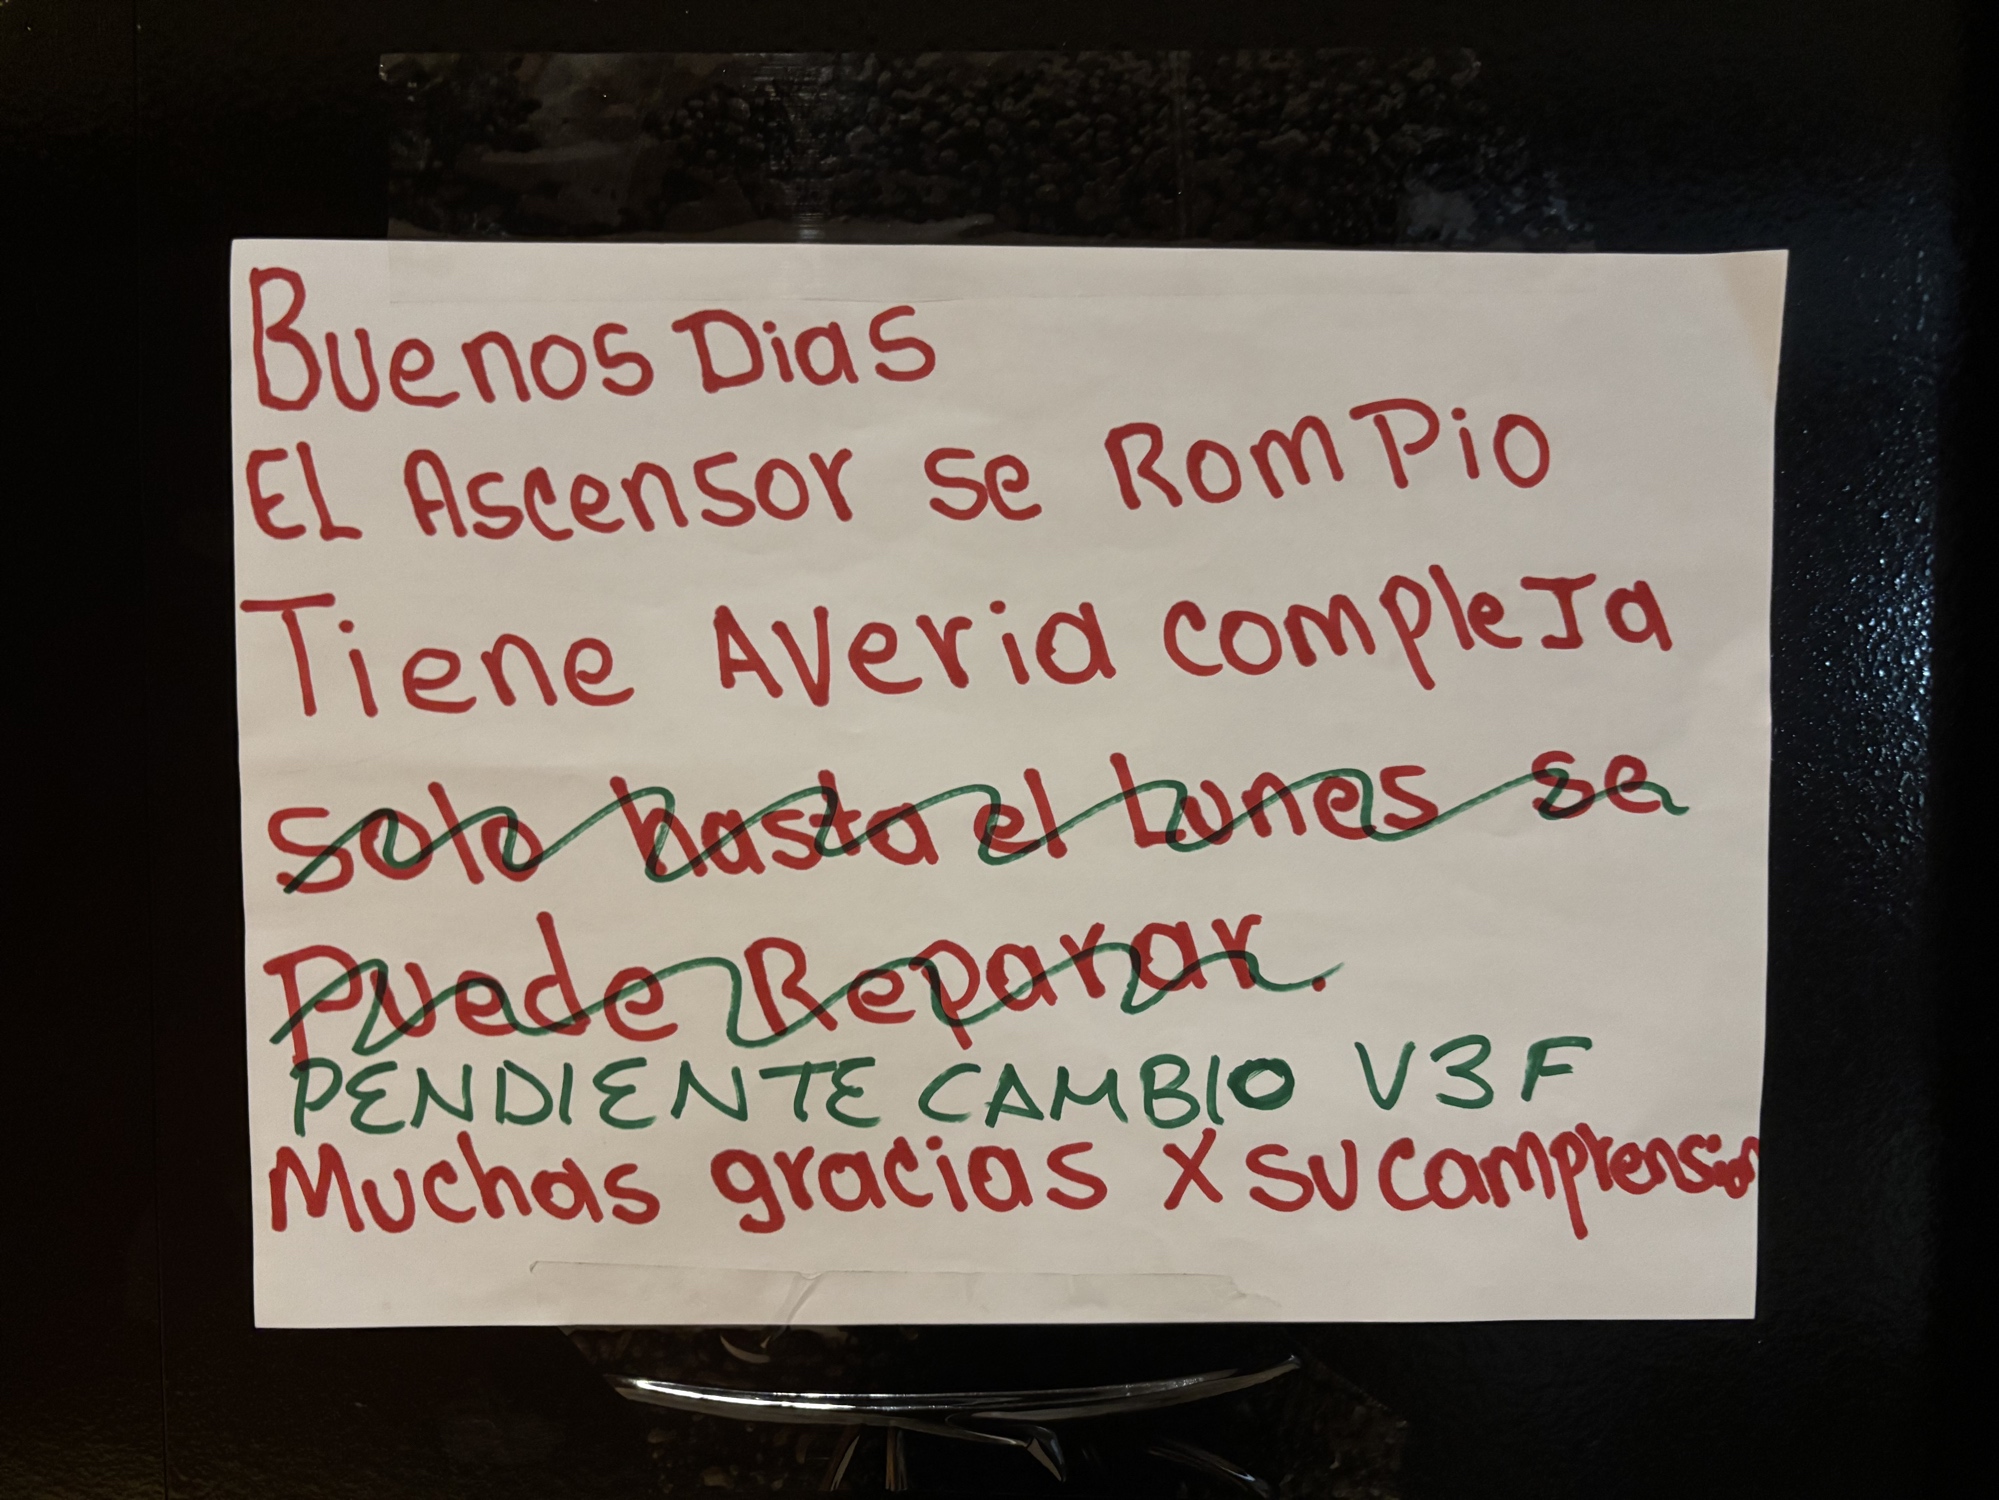 Buenos Dias
El Ascensor se Rompio
Tiene Averia compleja
solo hasta el Lunes se
Puede Reparar.
PENDIENTE CAMBIO V3F
Muchas gracias X su Comprension